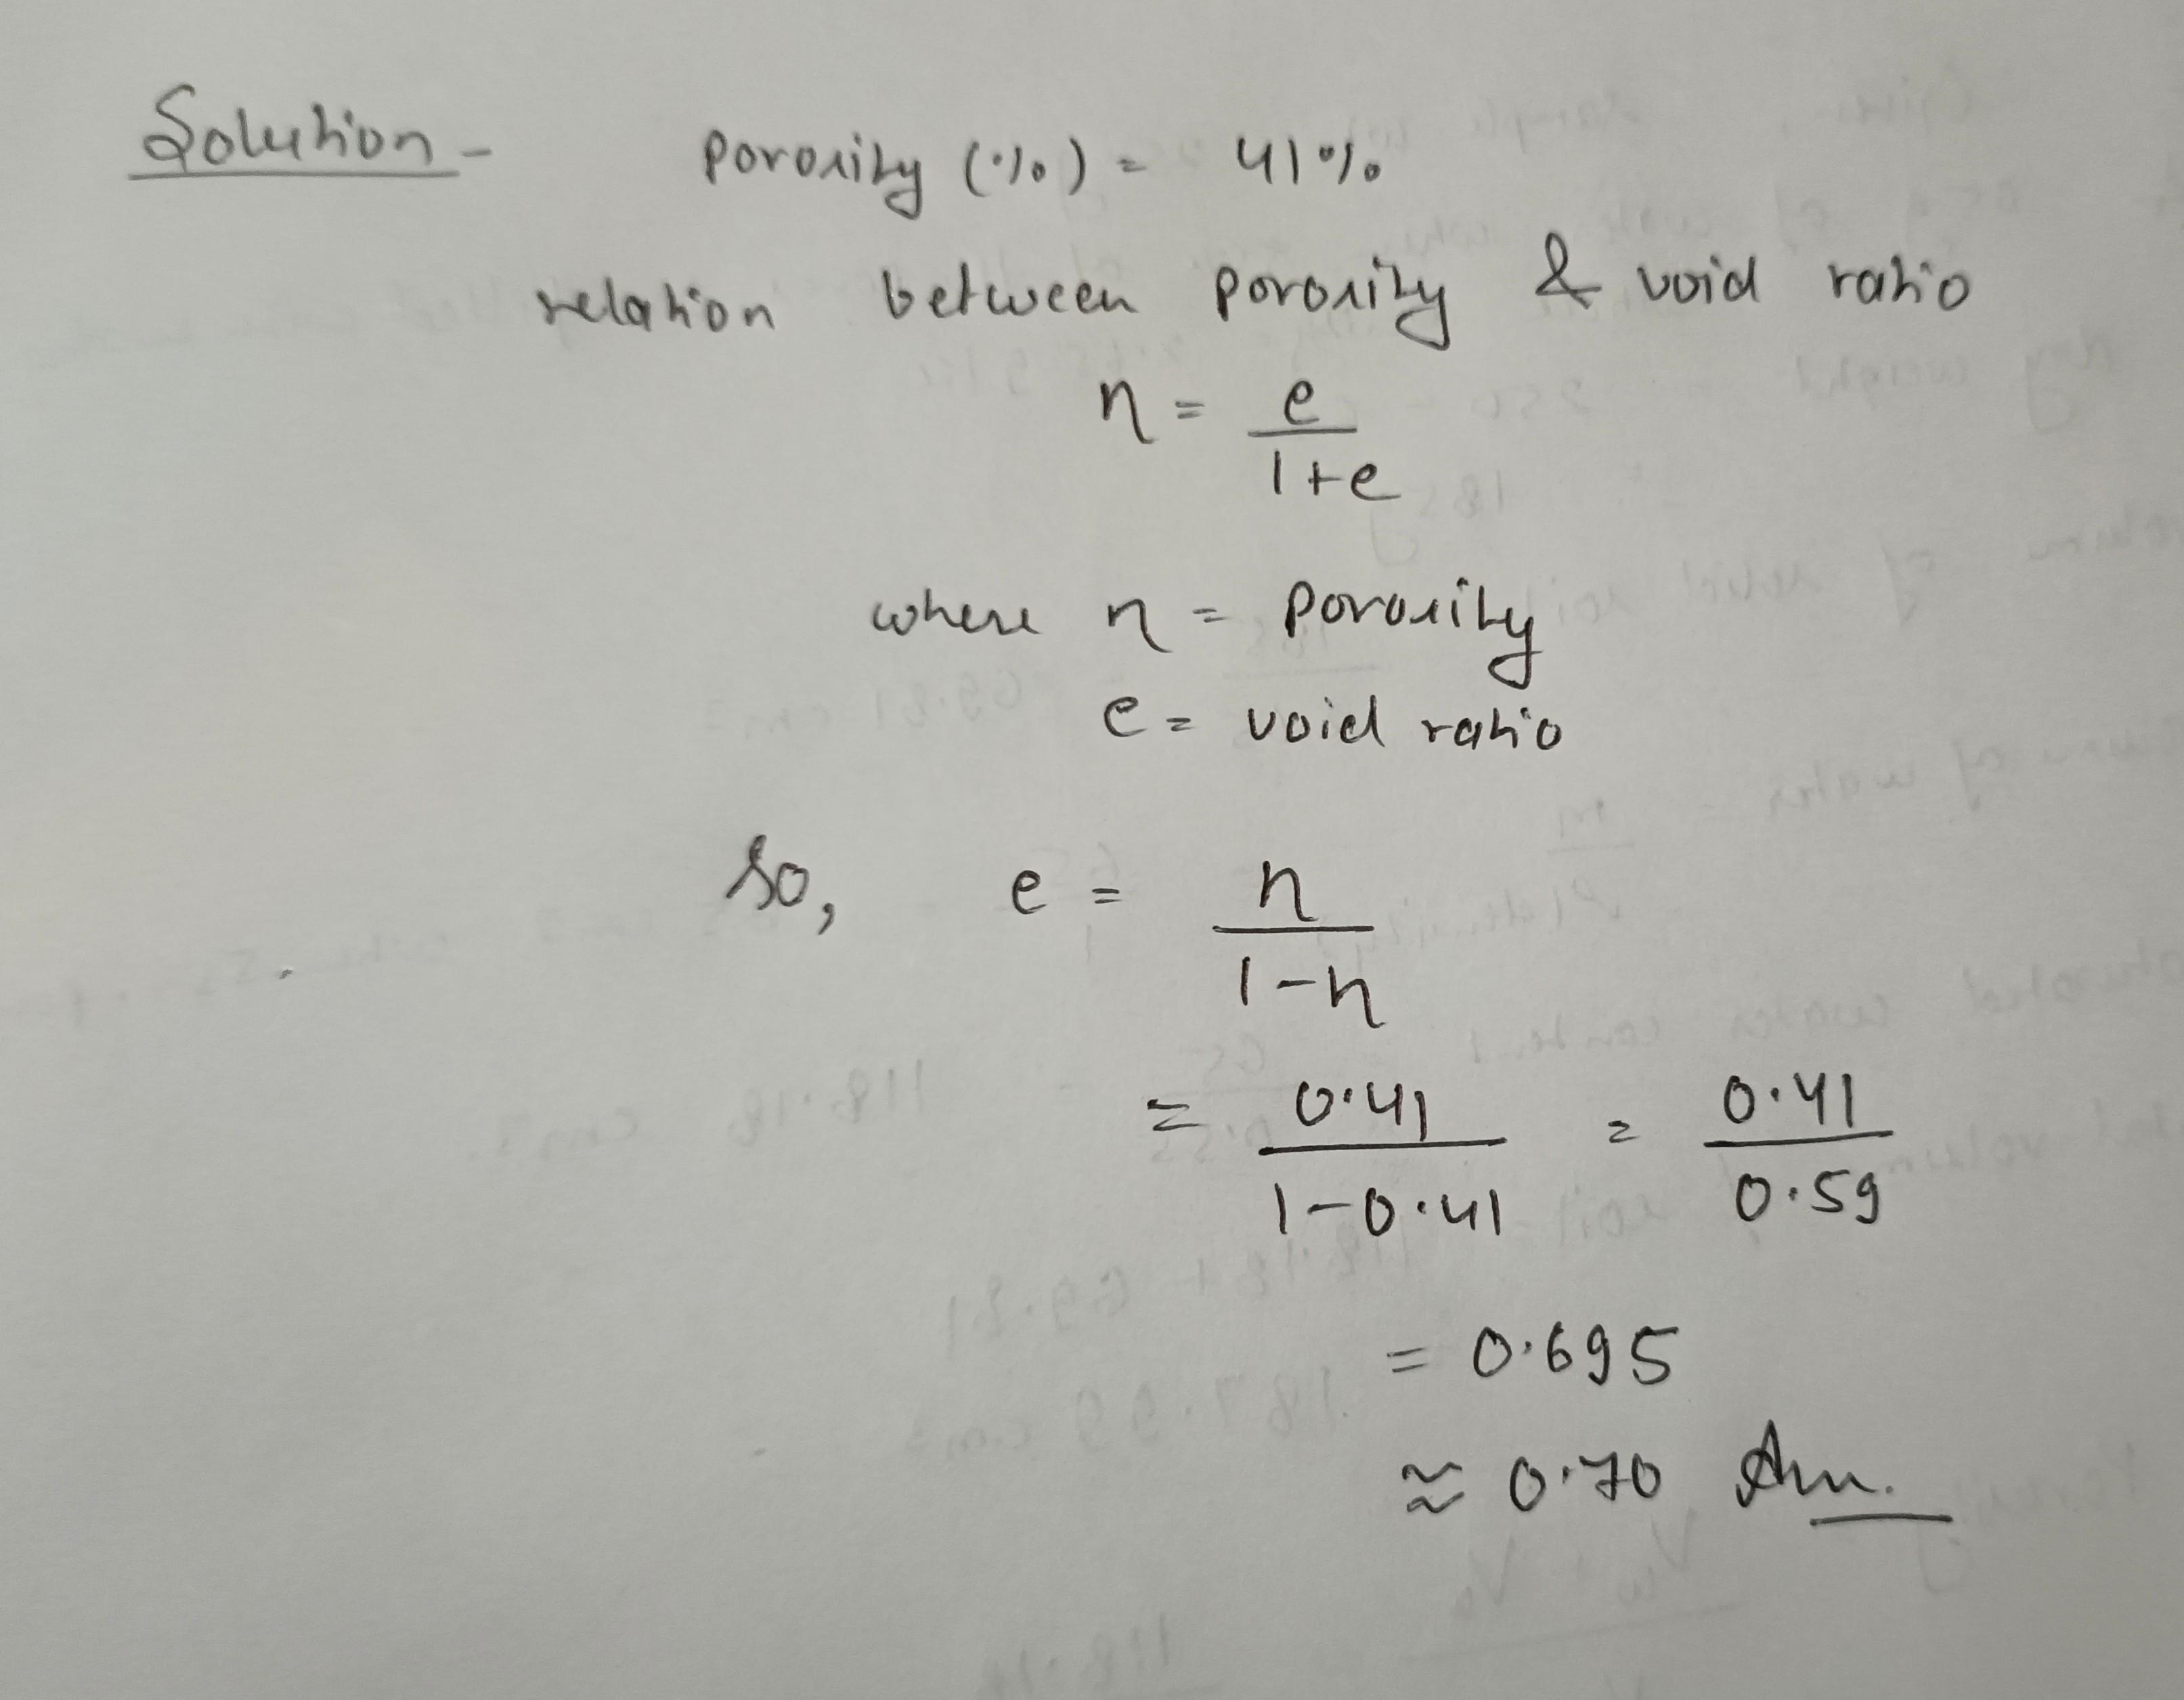 Solution - porosity (%) = 41%
relation between porosity & void ratio
n = e
1+e
where n = porosity
e = void ratio
So, e = n
1-n
= 0.41 = 0.41
1-0.41 0.59
= 0.695
≈ 0.70 Ans.